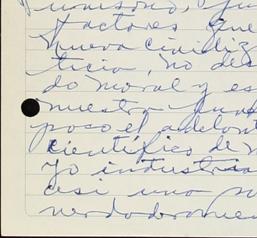 unísono, fu
factores que
nueva civiliz
ticia, no des
do moral y es
nuestra
poso el adelant
científico de n
yo industria
casi una
verdaderamen